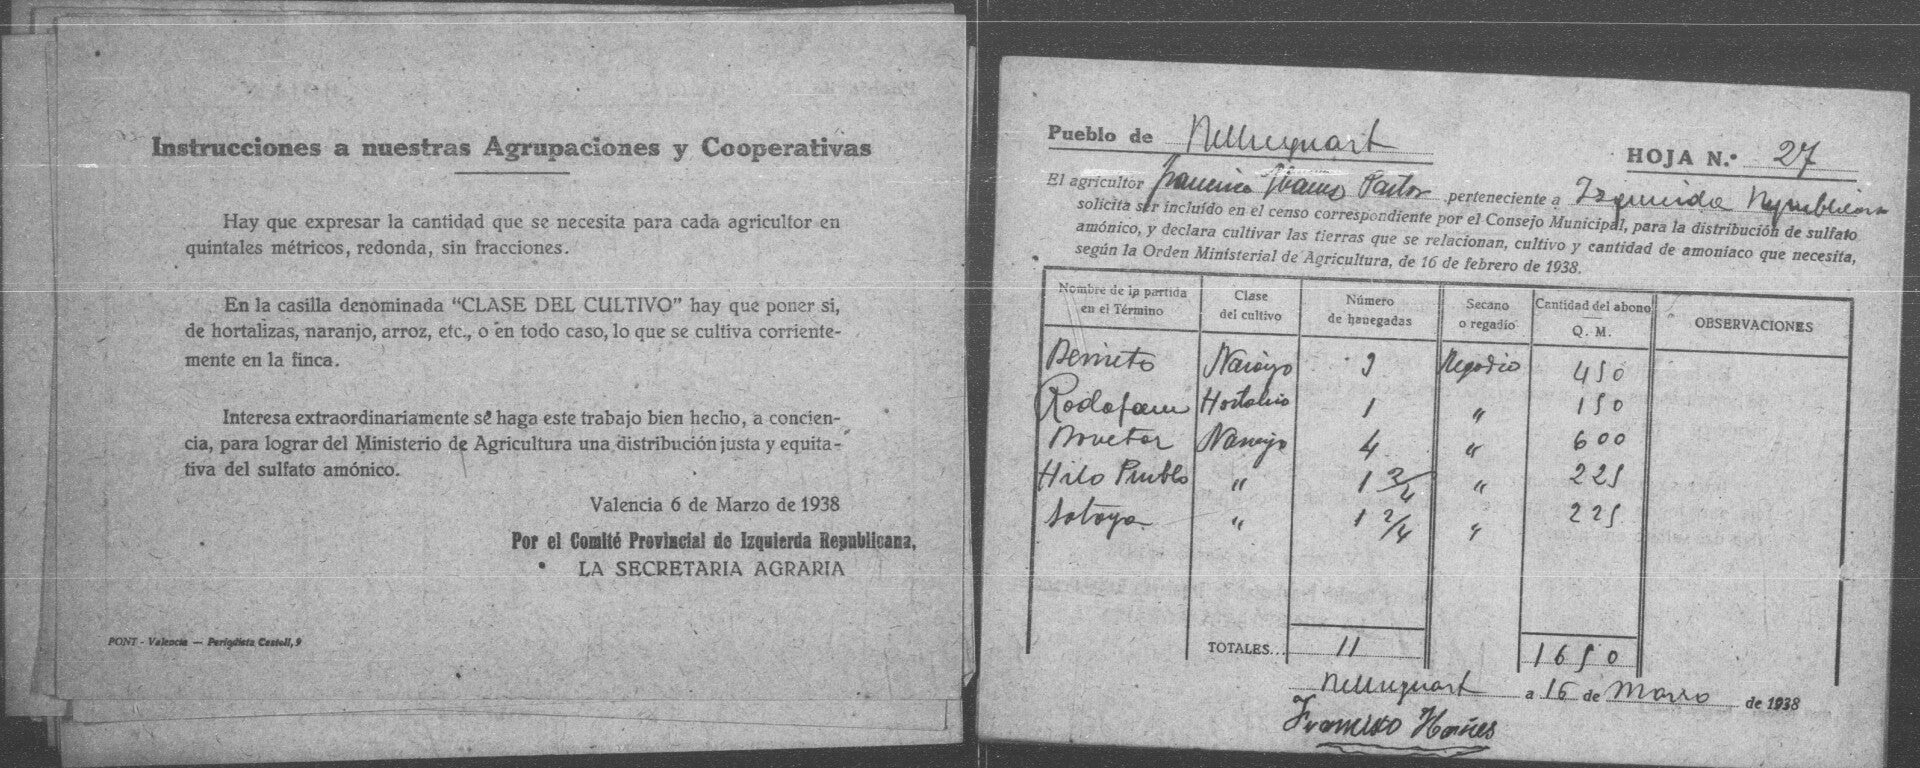 Instrucciones a nuestras Agrupaciones y Cooperativas
Hay que expresar la cantidad que se necesita para cada agricultor en
quintales métricos, redonda, sin fracciones.
En la casilla denominada "CLASE DEL CULTIVO" hay que poner si,
de hortalizas, naranjo, arroz, etc., o en todo caso, lo que se cultiva corriente-
mente en la finca.
Interesa extraordinariamente se haga este trabajo bien hecho, a concien-
cia, para lograr del Ministerio de Agricultura una distribución justa y equita-
tiva del sulfato amónico.
Valencia 6 de Marzo de 1938
Por el Comité Provincial de Izquierda Republicana,
LA SECRETARIA AGRARIA
PONT - Valencia — Periodista Castell, 9
Pueblo de
HOJA N.° 27
El agricultor Francisco Ibanes Pastor perteneciente a Izquierda Republicana
solicita ser incluído en el censo correspondiente por el Consejo Municipal, para la distribución de sulfato
amónico, y declara cultivar las tierras que se relacionan, cultivo y cantidad de amoniaco que necesita,
según la Orden Ministerial de Agricultura, de 16 de febrero de 1938.
Nombre de la partida en el Término Clase del cultivo Número de hanegadas Secano o regadío Cantidad del abono Q. M. OBSERVACIONES
Benieto Naranjo 3 Regadio 450
Hortaliza 1 " 150
Naranjo 4 " 600
Pueblo " 1 2/4 " 225
" 1 2/4 " 225
TOTALES... 11 1650
a 16 de Marso de 1938
Francisco